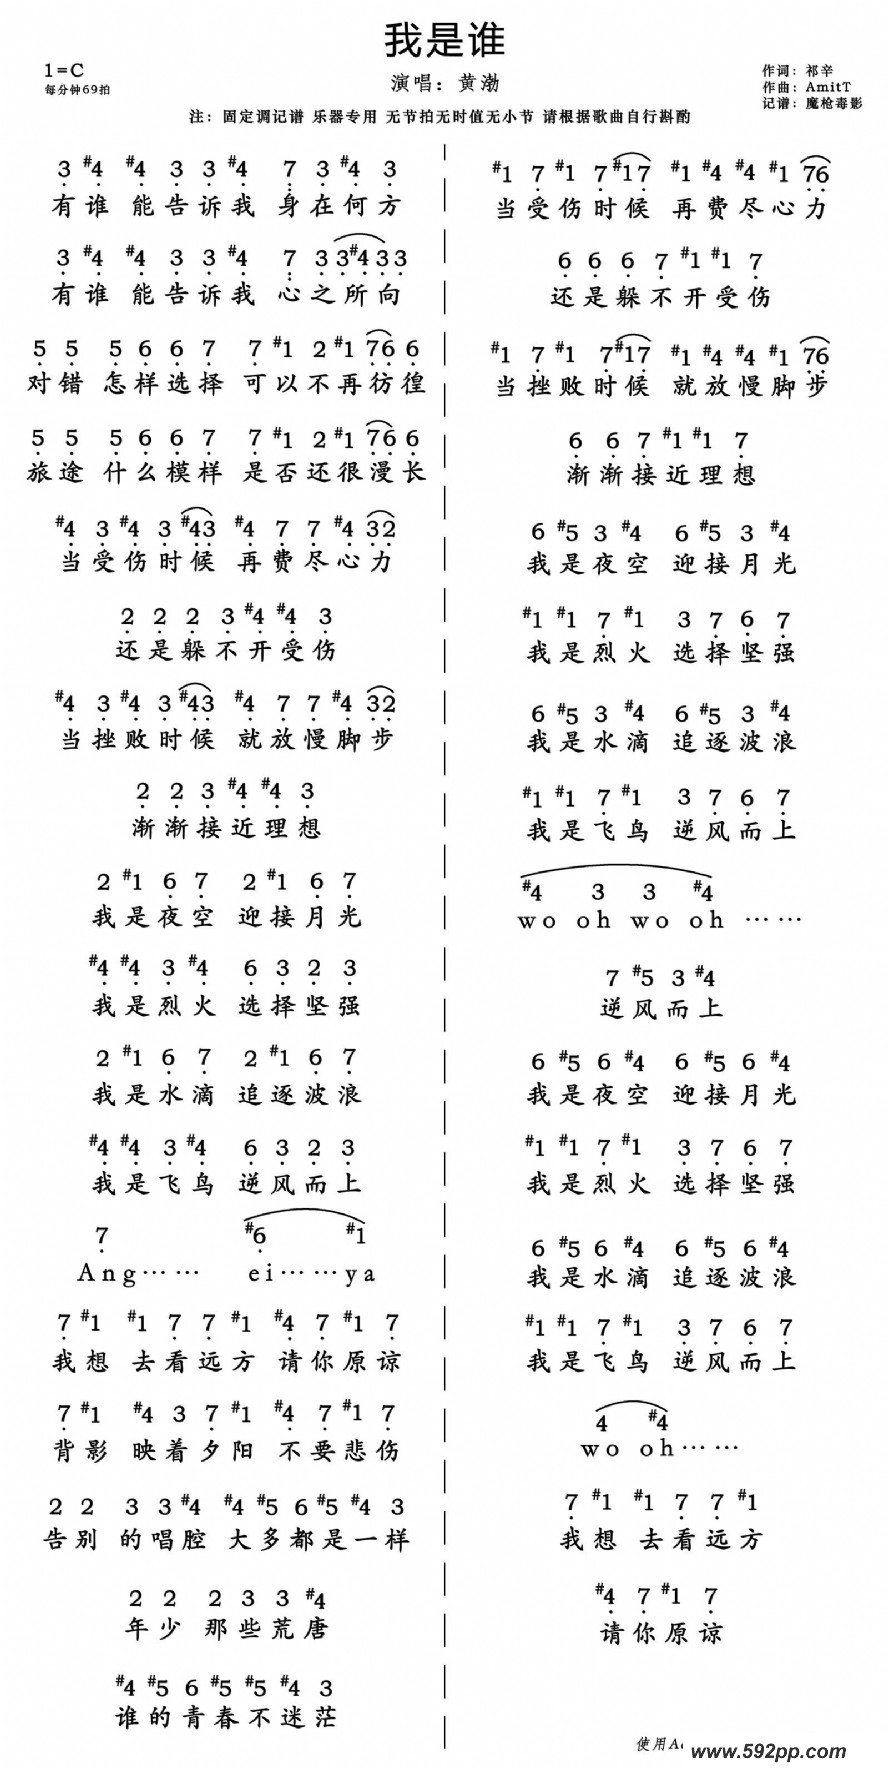 我是谁
1=C
演唱：黄渤
每分钟69拍
作词：祁辛
作曲：AmitT
记谱：魔枪毒影
注：固定调记谱 乐器专用 无节拍无时值无小节 请根据歌曲自行斟酌
3 #4 #4 3 3 #4 7 3 #4 3
有谁 能告诉我 身在何方
3 #4 #4 3 3 #4 7 3 3#4 3 3
有谁 能告诉我 心之所向
5 5 5 6 6 7 7 #1 2 #1 76 6
对错 怎样选择 可以不再彷徨
5 5 5 6 6 7 7 #1 2 #1 76 6
旅途 什么模样 是否还很漫长
#4 3 #4 3 #43 #4 7 7 #4 32
当受伤时候 再费尽心力
2 2 2 3 #4 #4 3
还是躲不开受伤
#4 3 #4 3 #43 #4 7 7 #4 32
当挫败时候 就放慢脚步
2 2 3 #4 #4 3
渐渐接近理想
2 #1 6 7 2 #1 6 7
我是夜空 迎接月光
#4 #4 3 #4 6 3 2 3
我是烈火 选择坚强
2 #1 6 7 2 #1 6 7
我是水滴 追逐波浪
#4 #4 3 #4 6 3 2 3
我是飞鸟 逆风而上
7 #6 #1
Ang…… ei……ya
7 #1 #1 7 7 #1 #4 7 #1 7
我想 去看远方 请你原谅
7 #1 #4 3 7 #1 #4 7 #1 7
背影 映着夕阳 不要悲伤
2 2 3 3 #4 #4 #5 6 #5 #4 3
告别 的唱腔 大多都是一样
2 2 2 3 3 #4
年少 那些荒唐
#4 #5 6 #5 #5 #4 3
谁的青春不迷茫
#1 7 #1 7 #17 #1 #4 #4 #1 76
当受伤时候 再费尽心力
6 6 6 7 #1 #1 7
还是躲不开受伤
#1 7 #1 7#17 #1 #4 #4 #1 76
当挫败时候 就放慢脚步
6 6 7 #1 #1 7
渐渐接近理想
6 #5 3 #4 6 #5 3 #4
我是夜空 迎接月光
#1 #1 7 #1 3 7 6 7
我是烈火 选择坚强
6 #5 3 #4 6 #5 3 #4
我是水滴 追逐波浪
#1 #1 7 #1 3 7 6 7
我是飞鸟 逆风而上
#4 3 3 #4
wo oh wo oh ……
7 #5 3 #4
逆风而上
6 #5 6 #4 6 #5 6 #4
我是夜空 迎接月光
#1 #1 7 #1 3 7 6 7
我是烈火 选择坚强
6 #5 6 #4 6 #5 6 #4
我是水滴 追逐波浪
#1 #1 7 #1 3 7 6 7
我是飞鸟 逆风而上
4 #4
wo oh……
7 #1 #1 7 7 #1
我想 去看远方
#4 7 #1 7
请你原谅
使用A
www.592pp.com